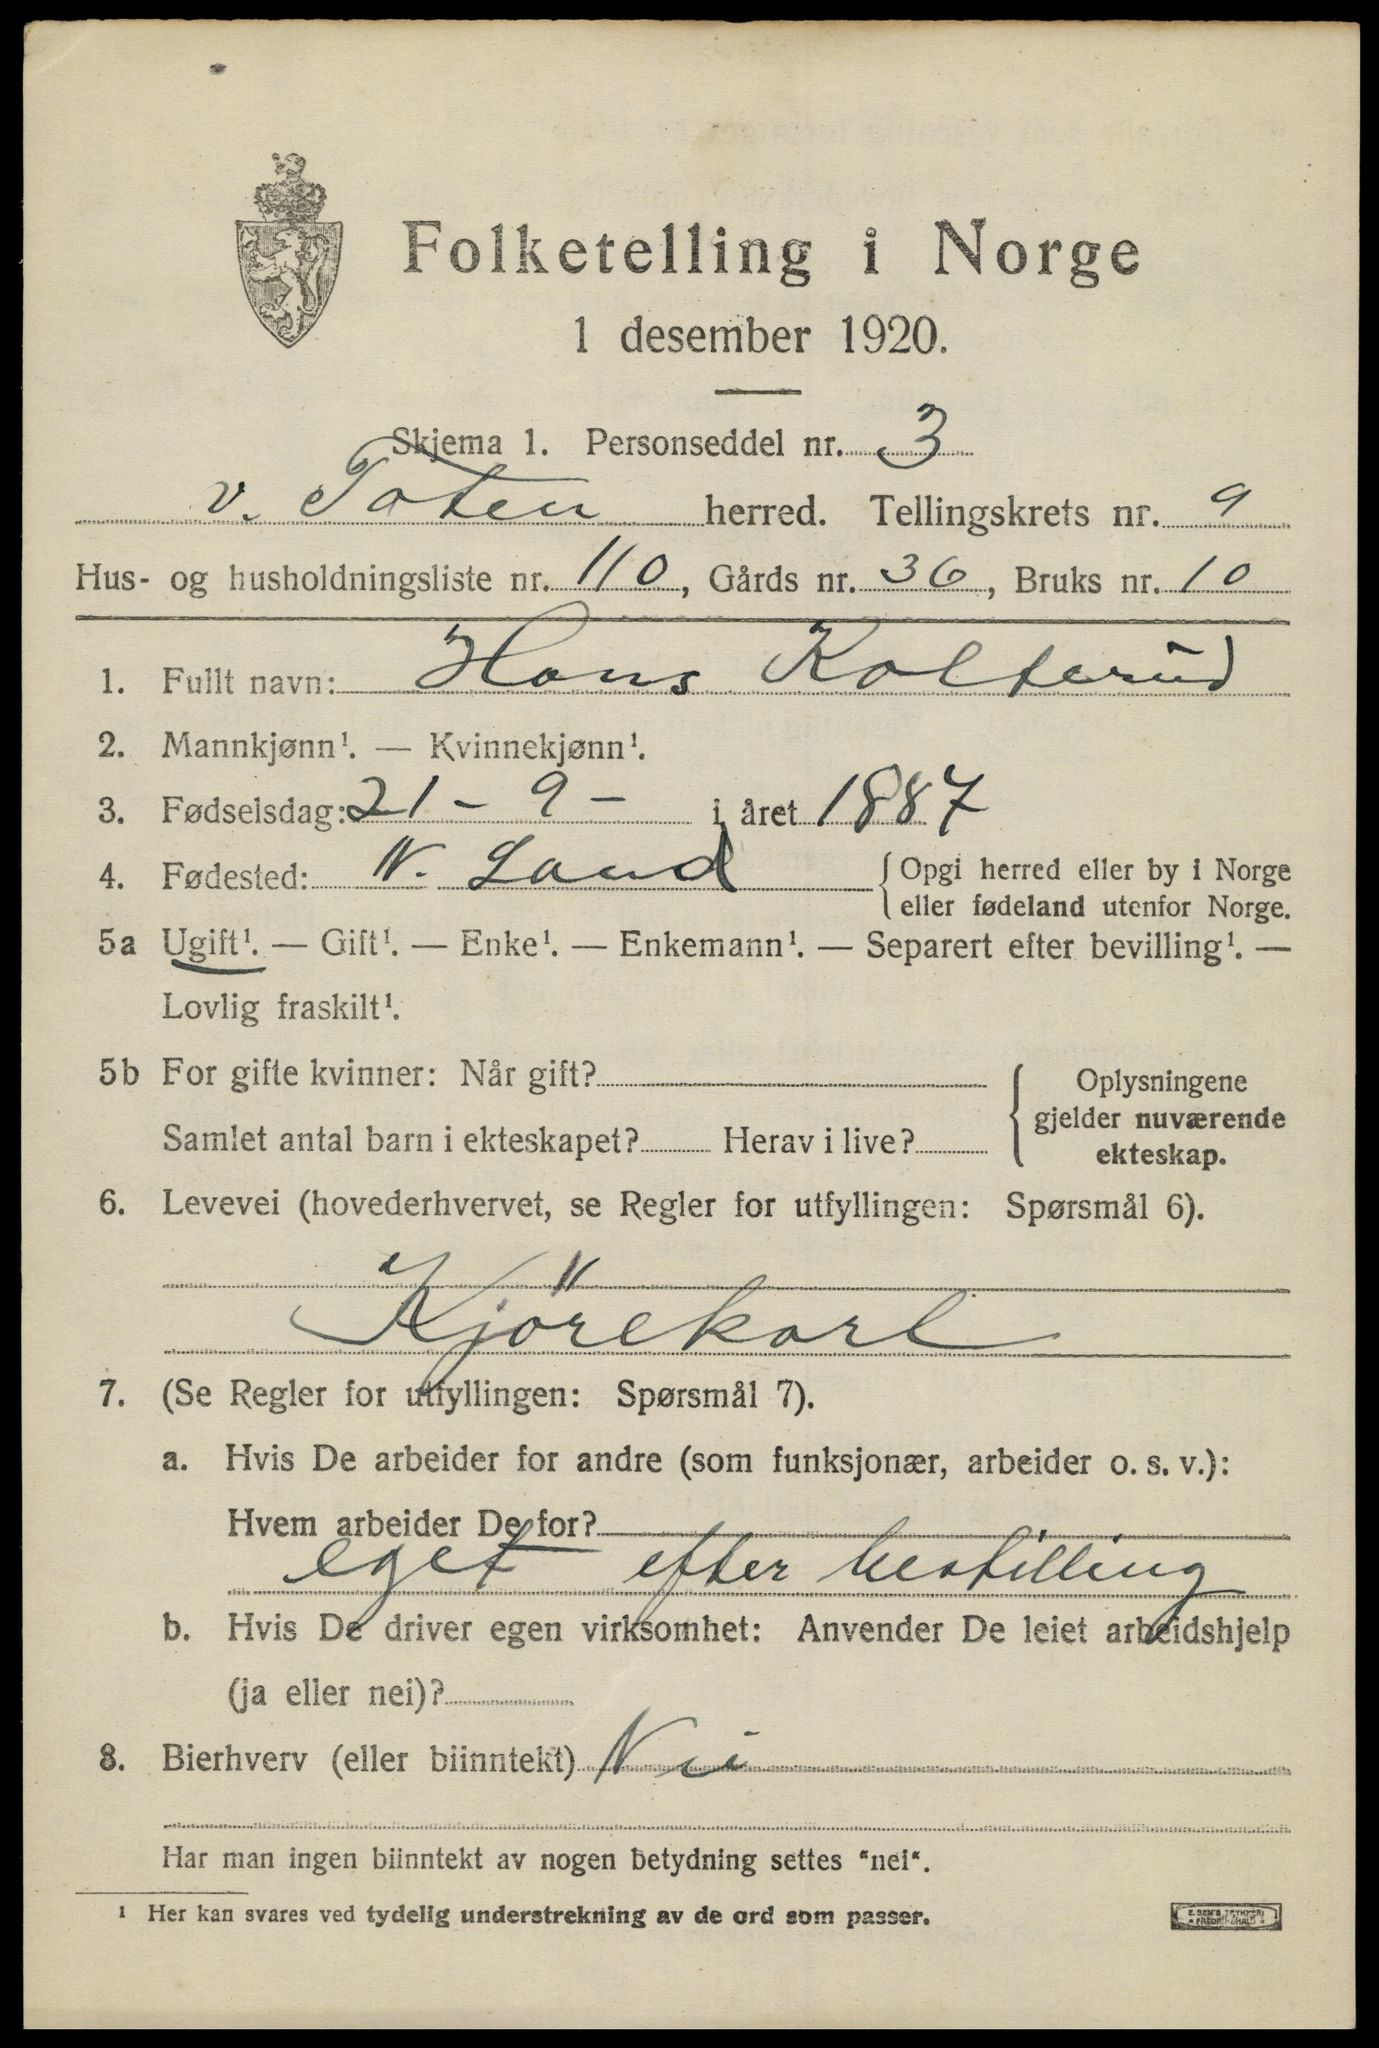 Folketelling i Norge
1 desember 1920.
Skjema 1. Personseddel nr. 3
v. Toten herred. Tellingskrets nr. 9
Hus- og husholdningsliste nr. 110, Gårds nr. 36, Bruks nr. 10
1. Fullt navn: Hans Kolterud
2. Mannkjønn¹. — Kvinnekjønn¹.
3. Fødselsdag: 21 - 9 - i året 1887
4. Fødested: N. Land {Opgi herred eller by i Norge
eller fødeland utenfor Norge.
5a Ugift¹. — Gift¹. — Enke¹. — Enkemann¹. — Separert efter bevilling¹. —
Lovlig fraskilt¹.
5b For gifte kvinner: Når gift?
Samlet antal barn i ekteskapet? Herav i live?
Oplysningene
gjelder nuværende
ekteskap.
6. Levevei (hovederhvervet, se Regler for utfyllingen: Spørsmål 6).
Kjörekarl
7. (Se Regler for utfyllingen: Spørsmål 7).
a. Hvis De arbeider for andre (som funksjonær, arbeider o. s. v.):
Hvem arbeider De for?
eget efter bestilling
b. Hvis De driver egen virksomhet: Anvender De leiet arbeidshjelp
(ja eller nei)?
8. Bierhverv (eller biinntekt) Nei
Har man ingen biinntekt av nogen betydning settes “nei“.
¹ Her kan svares ved tydelig understrekning av de ord som passer.
E. SEM'S TRYKKERI
* FREDRIKSHALD *